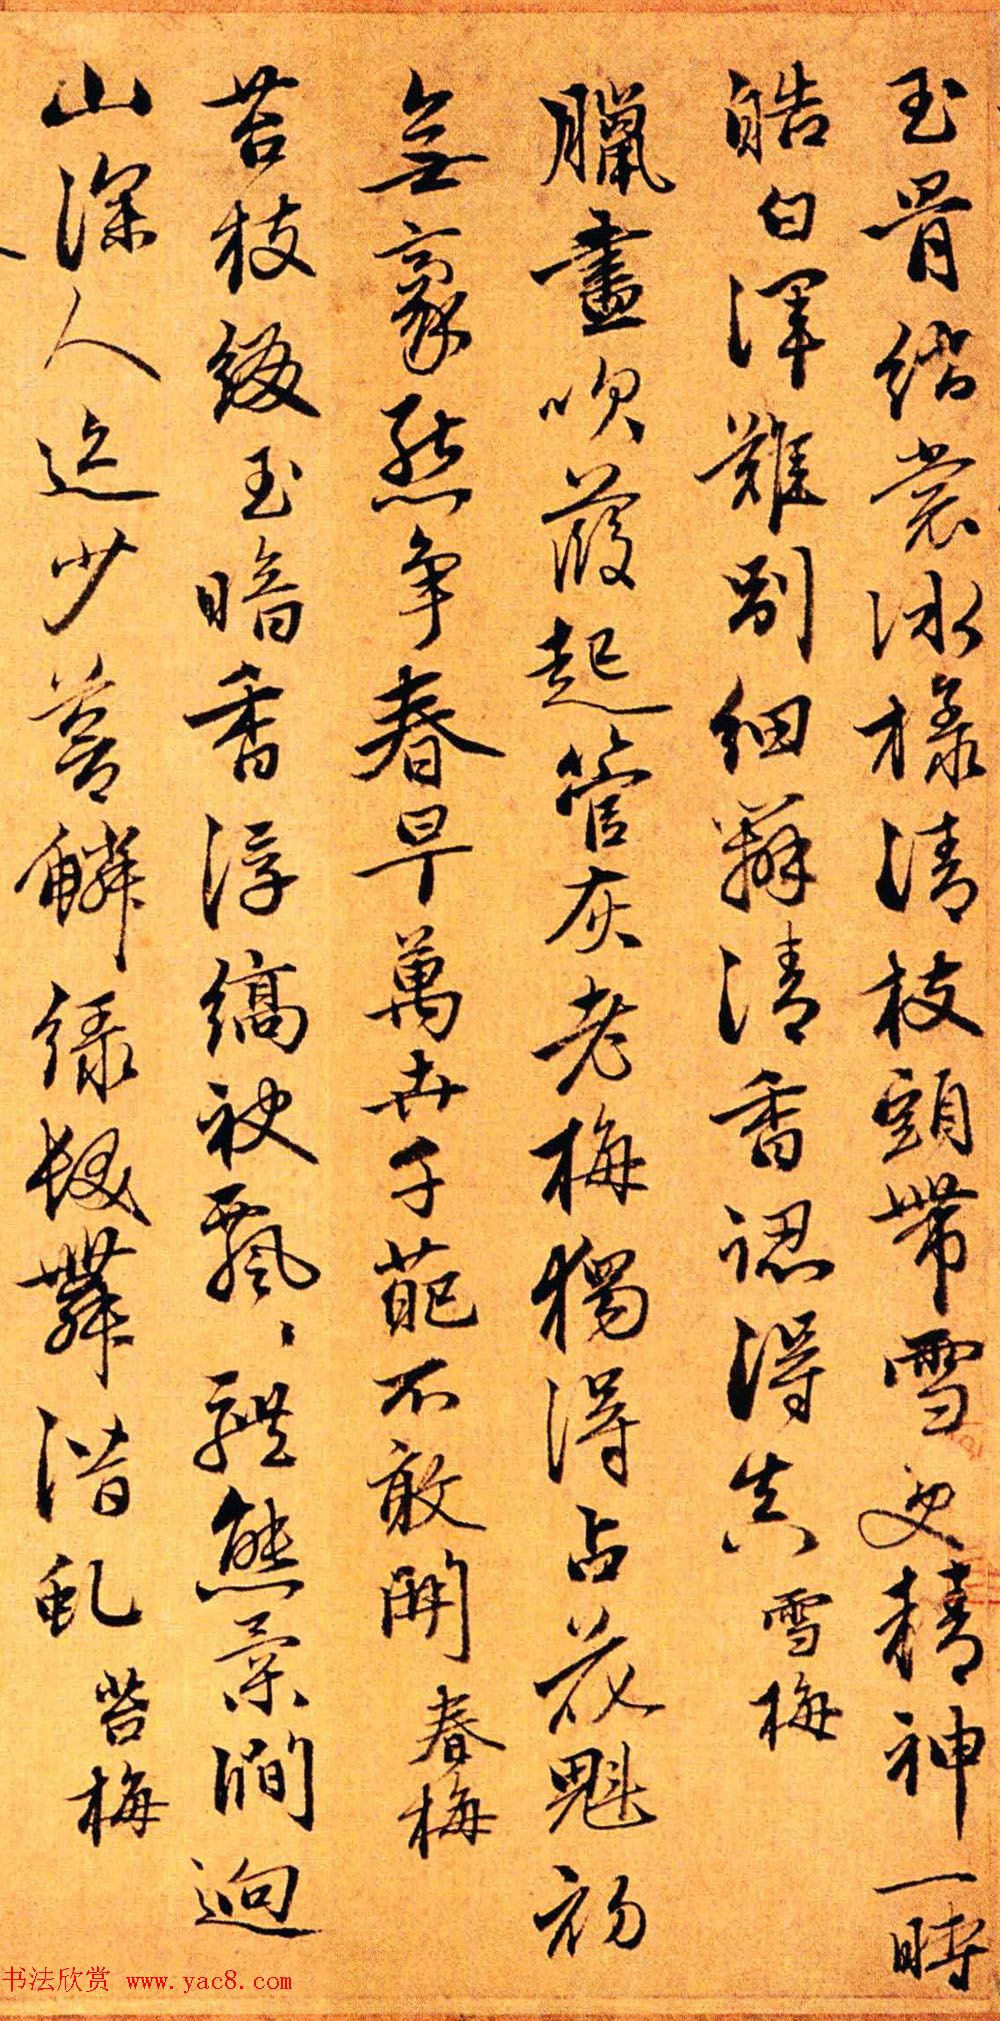 玉骨絺裳冰樣清枝頭帶雪更精神一時
皓白渾難別細辯清香認得真 雪梅
臘盡吹葭起管灰老梅獨得占花魁初
無豪熱争春早萬卉千葩不敢開 春梅
苔枝綴玉暗香浮縞袂飄〻體態柔澗迥
山深人迹少蒼鱗緑髮舞潛虬 苔梅
书法欣赏 www.yac8.com